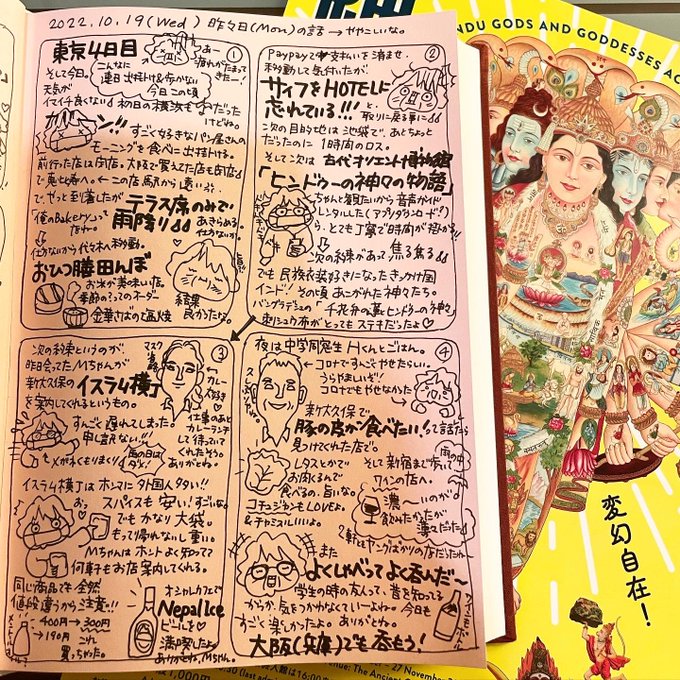 2022.10.19(Wed) 昨々日(Mon)の話→ややこしいな。
①
東京4日目
あー
疲れがたまって
きたー!
そして今日。
こんなに
連日出掛け
今日この頃
天気が
イマイチ良くない
初日の横浜も雨だった
けどね。
ガーン!!
すごく好きなパン屋さんの
モーニングを食べに出掛ける。
前行った店は閉店。大阪で買えてた店も閉店
で恵比寿へ。←この店駅から遠い…
で、やっと到着したが テラス席のみで
「俺のBakery」って
とこね。
雨降り
あきらめる
仕方ないが。
仕方ないから代々木へ移動。
おひつ膳田んぼ
お米が美味しい店。
季節の2つのオーダー
金華さばのへ塩焼
結果
良かったな。
②
PayPayで支払いを済ませ、
移動して気付いたが、
サイフをHOTELに
忘れている!!!と、
取りに戻る事に
次の目的地は池袋で、あとちょっと
だったのに1時間のロス。
そして次は古代オリエント博物館
「ヒンドゥーの神々の物語」
ちゃんと観たいから音声ガイド
レンタルしたら(アプリダウンロード?)
ら、とても丁寧で時間が掛かる!!
↓次の約束があって焦る焦る
でも民族衣装好きになったきっかけ国
インド!その頃あこがれた神々たち。
バングラデシュの「千花弁の蓮ヒンドゥーの神々」
刺シュウ布がとってもステキだったよ♡
③
次の約束というのが、
昨日会ったMちゃんが
新大久保のイスラム横丁
を案内してくれるというもの。
マスク
カレー
大好き
すんごく遅れてしまった。
申し訳ない!!
仕事のあと
カレーランチ
して待ってい
てくれたそう。
ありがとね。
メガネくもりまくり
雨の日は
ダメ!
イスラム横丁はホンマに外国人多い!!
おっ
スパイスも安い!すごいな。
でもかなり大袋。
もって帰れないし重い。
Mちゃんはホントよく知ってて
何軒もお店案内してくれる。
同じ商品でも全然
値段違うから注意!!
400円→300円
→190円 これ
買っちゃった。
オシャレカフェで
Nepal Ice
ビールを
満喫したよ
ありがとね、Mちゃん。
④
夜は中学同窓生Hくんとごはん。
コロナですごくやせたらしい。
うらやましいぞ
コロナでもやせなかった
新大久保で
豚の皮が食べたい!って話したら
見つけてくれた店で。
レタスとかで
お肉くるんで
食べるの、旨いな。
コチュジャンもLOVEよ。
&チャミスル!!!!よ。
そして新宿まで歩いて
雨の中
ワインの店へ。
濃〜いのが
飲みたかったが
薄々だった
2軒ともヤングばかりの店だったわー
また
よくしゃべってよく呑んだ〜
学生の時の友人って、昔を知ってる
からか、気をつかわなくていーよねー。今日も
すごく楽しかったよ。ありがとね。
大阪(兵庫)でも呑もう!
HINDU GODS AND GODDESSES
変幻自在!
27 November
The Ancient
1,000円
16:00